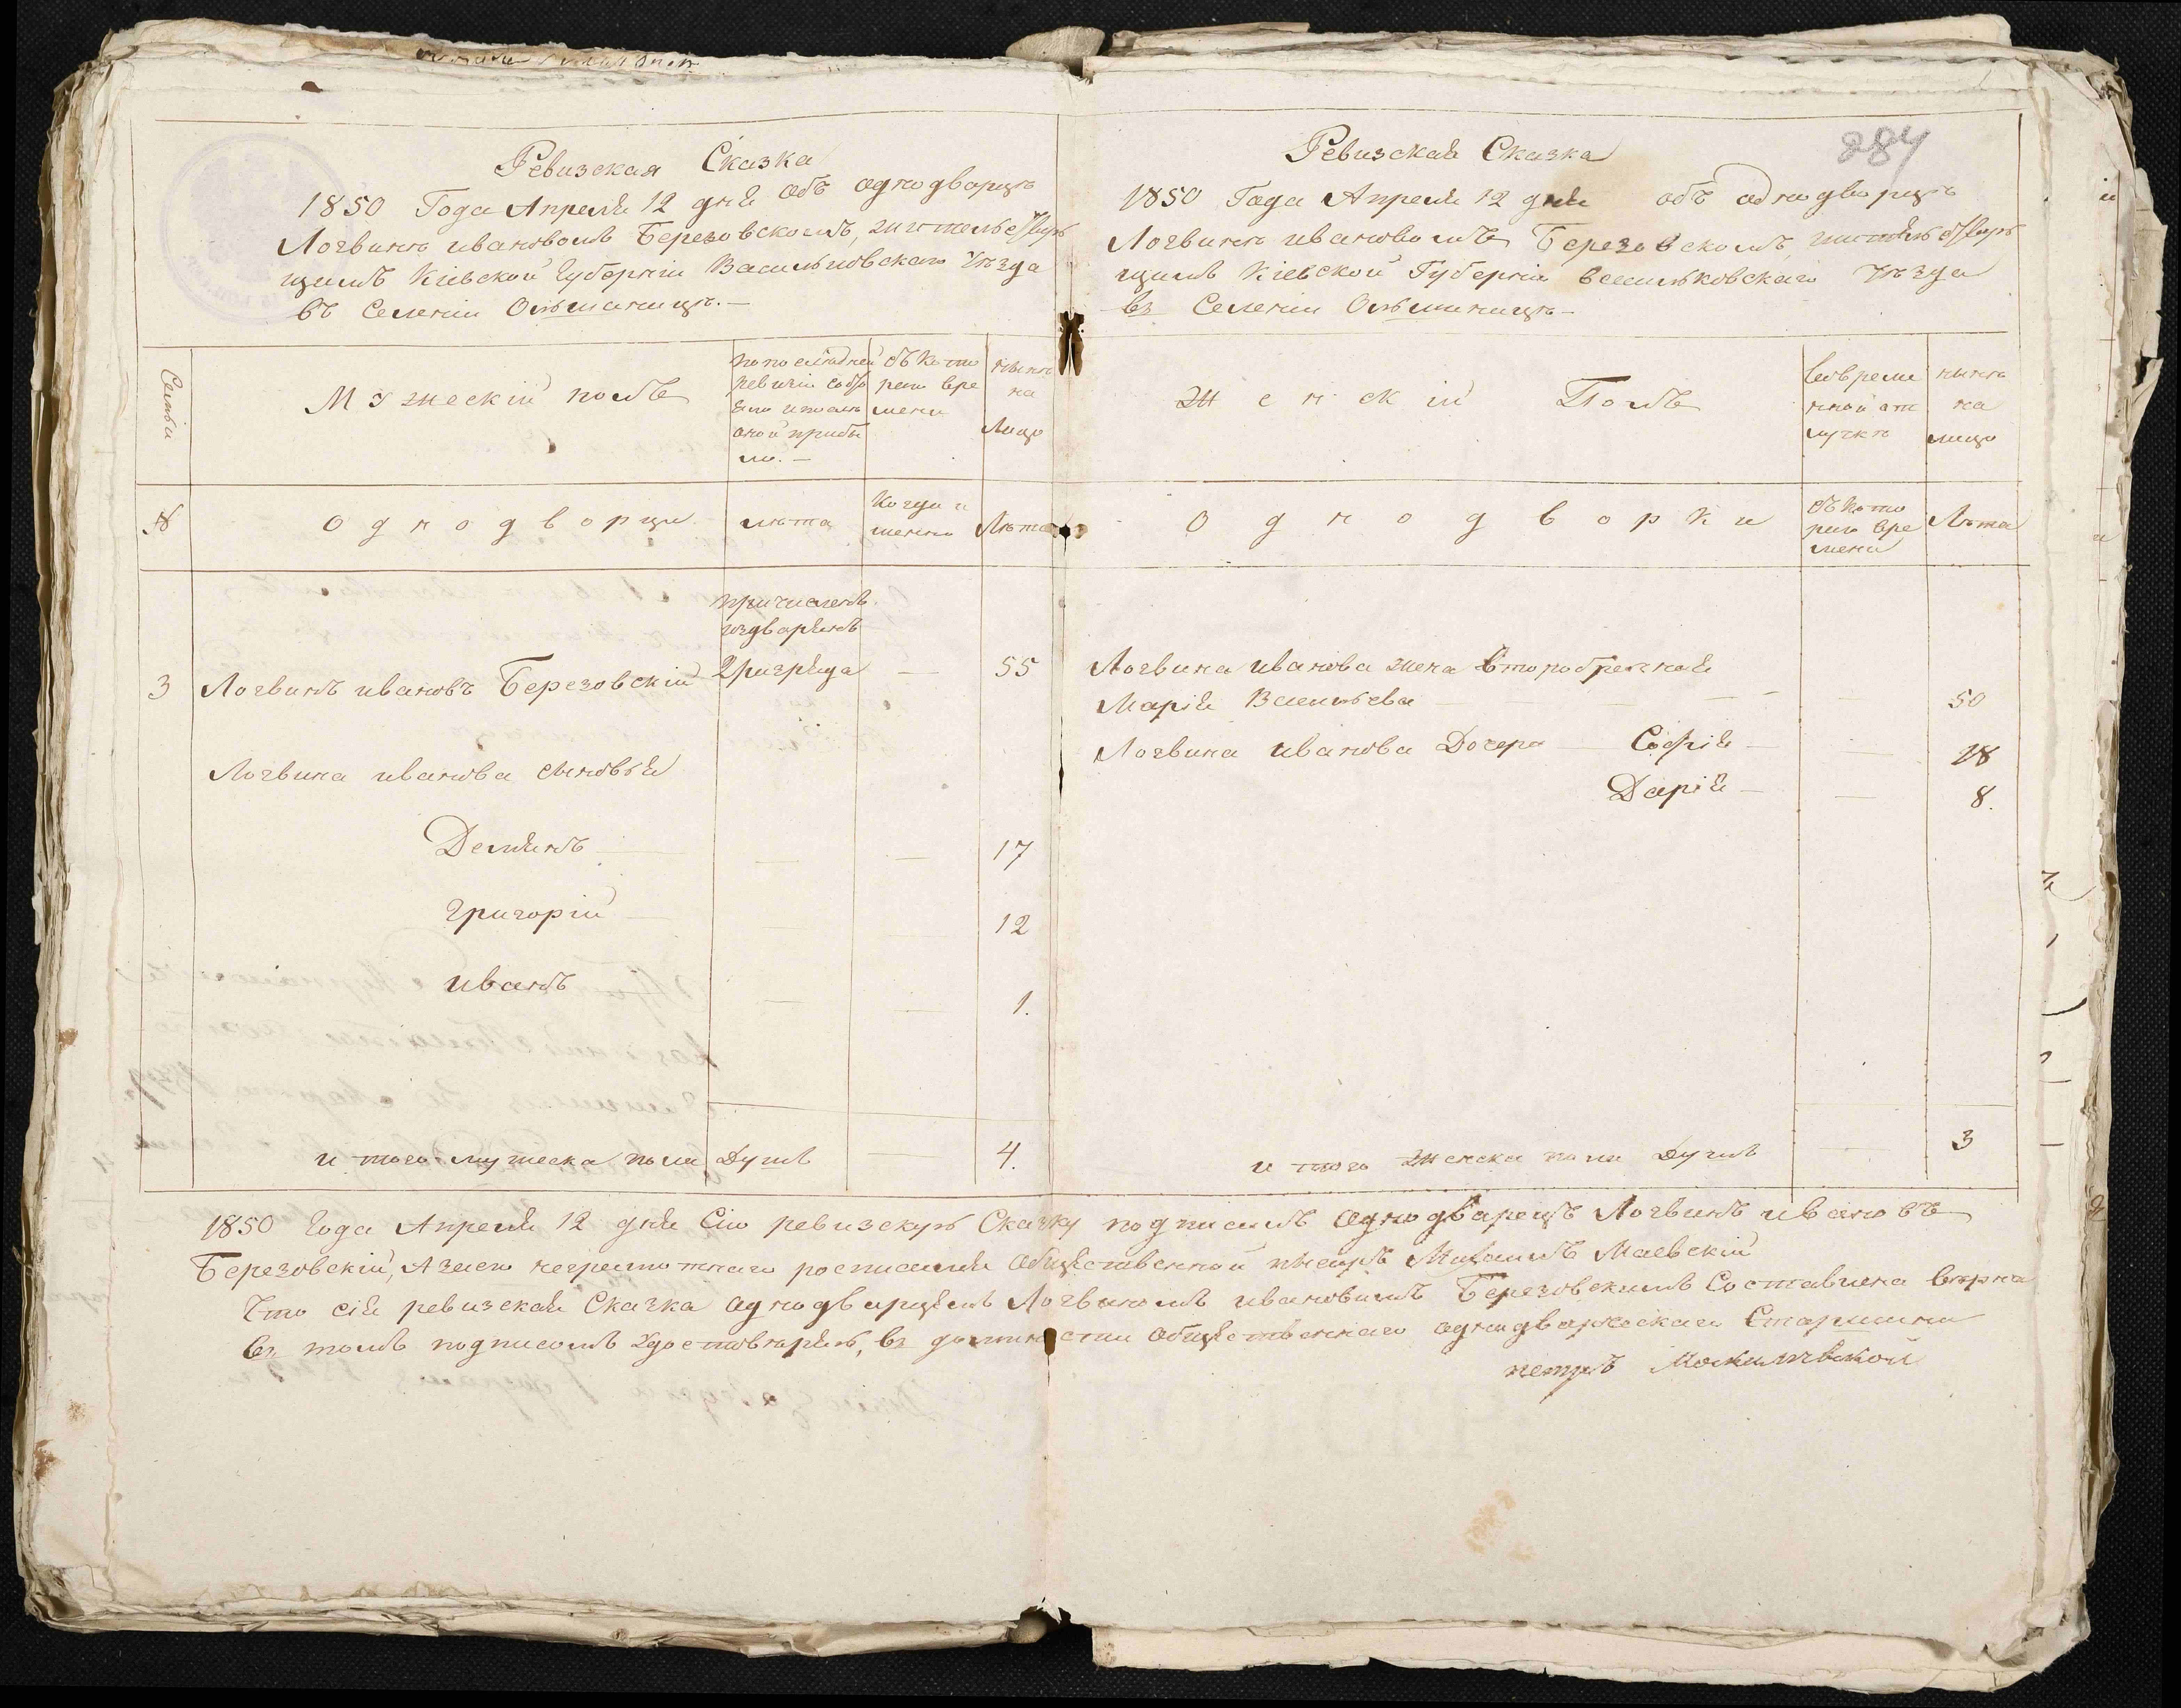 Ревизская Сказка
1850 Года Апреля 12 дня объ однодворцѣ
Логвинѣ ивановомъ Березовскомъ, жительствую
щимъ Кіевской Губерніи Васильковскаго Уѣзда
въ Селеніи Ольшаницѣ.—
Семьи
Мужескій полъ
по последней
ревизіи состо
яло и послѣ
оной прибы
ло.—
съ кото
раго вре
мени
нынѣ
на
Лицо
№
Однодворцы
лѣта
Когда и
менно
Лѣта
причисленъ
изъ дворянъ
3 Логвинъ ивановъ Березовскій 2 разряда — 55
Логвина иванова сыновья
Демянъ — — — 17
Григорій — — — 12
иванъ — — 1.
и того мужеска пола Душъ — 4.
284
Ревизская Сказка
1850 Года Апреля 12 дня объ однодворцѣ
Логвинѣ ивановомъ Березовскомъ, жительствую
щимъ Кіевской Губерніи Васильковскаго Уѣзда
въ Селеніи Ольшаницѣ—
Женскій Полъ
во време
нной от
лучкѣ
нынѣ
на
лицо
Однодворки
съ кото
раго вре
мени
Лѣта
Логвина иванова жена второбрачная
Марія Васильева — — — 50
Логвина иванова Дочери — Софія — — 18
Дарія — — 8.
и того женска пола Душъ — 3
1850 Года Апреля 12 дня Сію ревизскую Сказку подписалъ однодварецъ Логвинъ ивановъ
Березовскій, А за его неграмотнаго росписался общественной писарь Михаилъ Маевскій
Что сія ревизская Сказка однодварцемъ Логвиномъ ивановымъ Березовскимъ Составлена вѣрна
въ томъ подписомъ Удостовѣряю, въ должности общественнаго однодварческаго Старшины
петръ